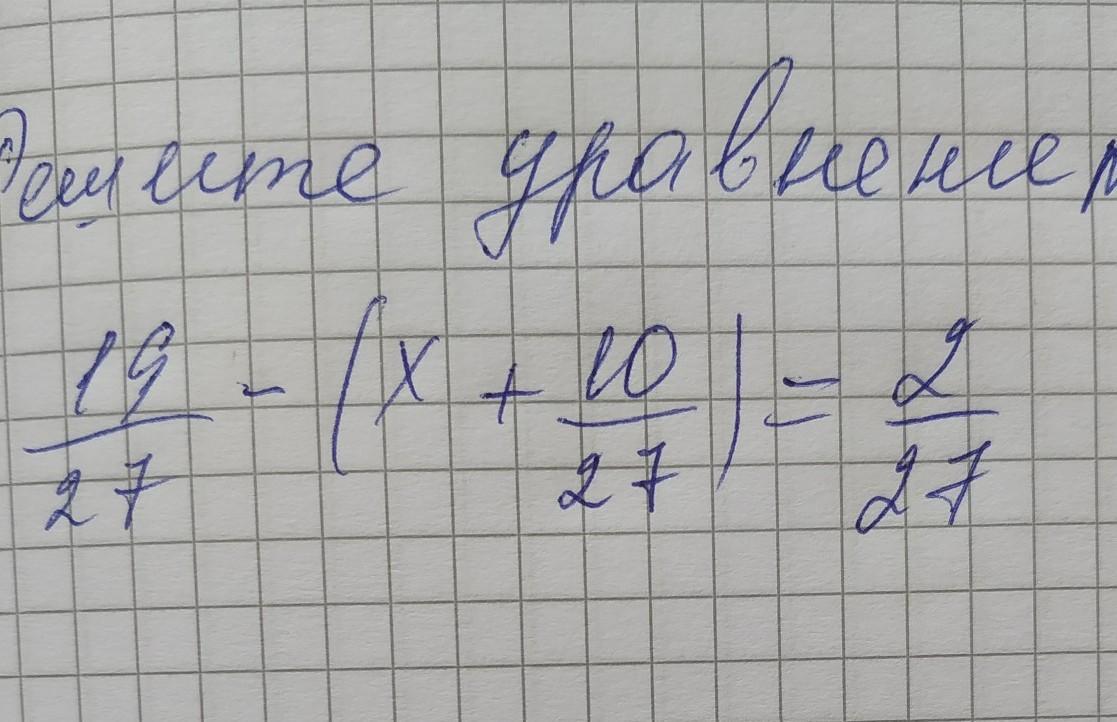 Решите уравнение
19/27 - (x + 10/27) = 2/27